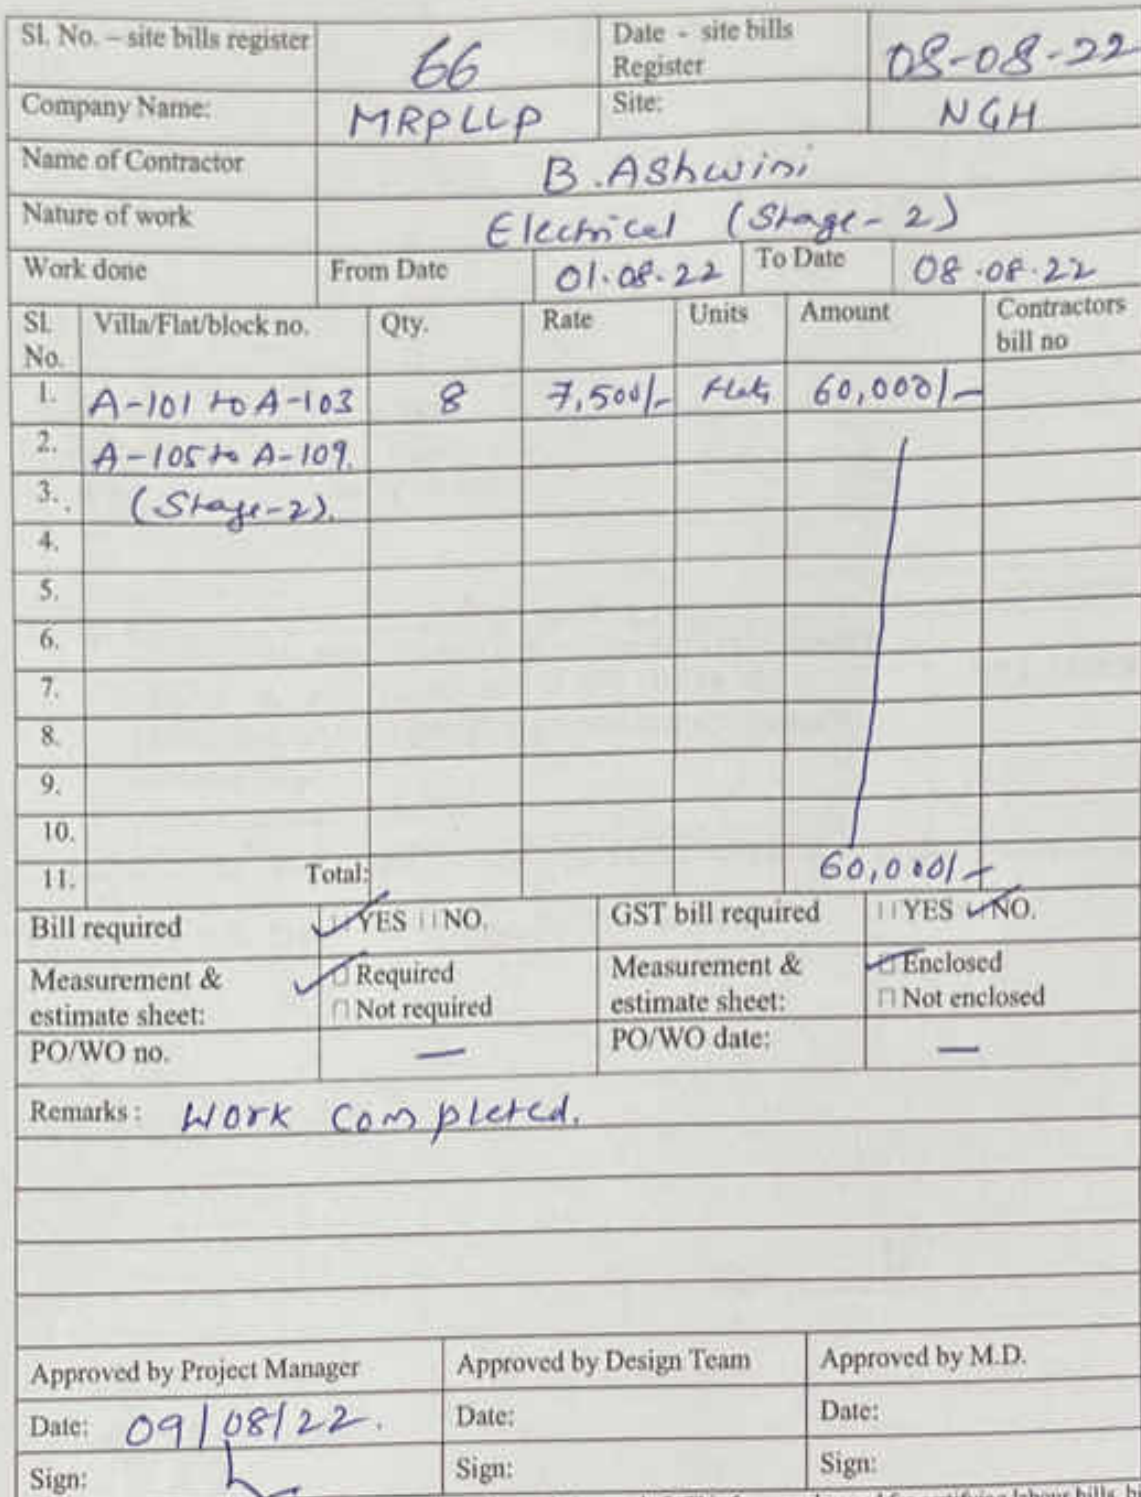 Sl. No. – site bills register 66 Date - site bills Register 08-08-22
Company Name: MRPLLP Site: NGH
Name of Contractor B. Ashwini
Nature of work Electrical (Stage-2)
Work done From Date 01.08.22 To Date 08.08.22
Sl. No. Villa/Flat/block no. Qty. Rate Units Amount Contractors bill no
1. A-101 to A-103 8 7,500/- Flats 60,000/-
2. A-105 to A-109.
3. (Stage-2).
4.
5.
6.
7.
8.
9.
10.
11. Total: 60,000/-
Bill required YES NO. GST bill required YES NO.
Measurement & estimate sheet: Required Not required Measurement & estimate sheet: Enclosed Not enclosed
PO/WO no. — PO/WO date: —
Remarks : Work Completed.
Approved by Project Manager Approved by Design Team Approved by M.D.
Date: 09/08/22. Date: Date:
Sign: Sign: Sign: